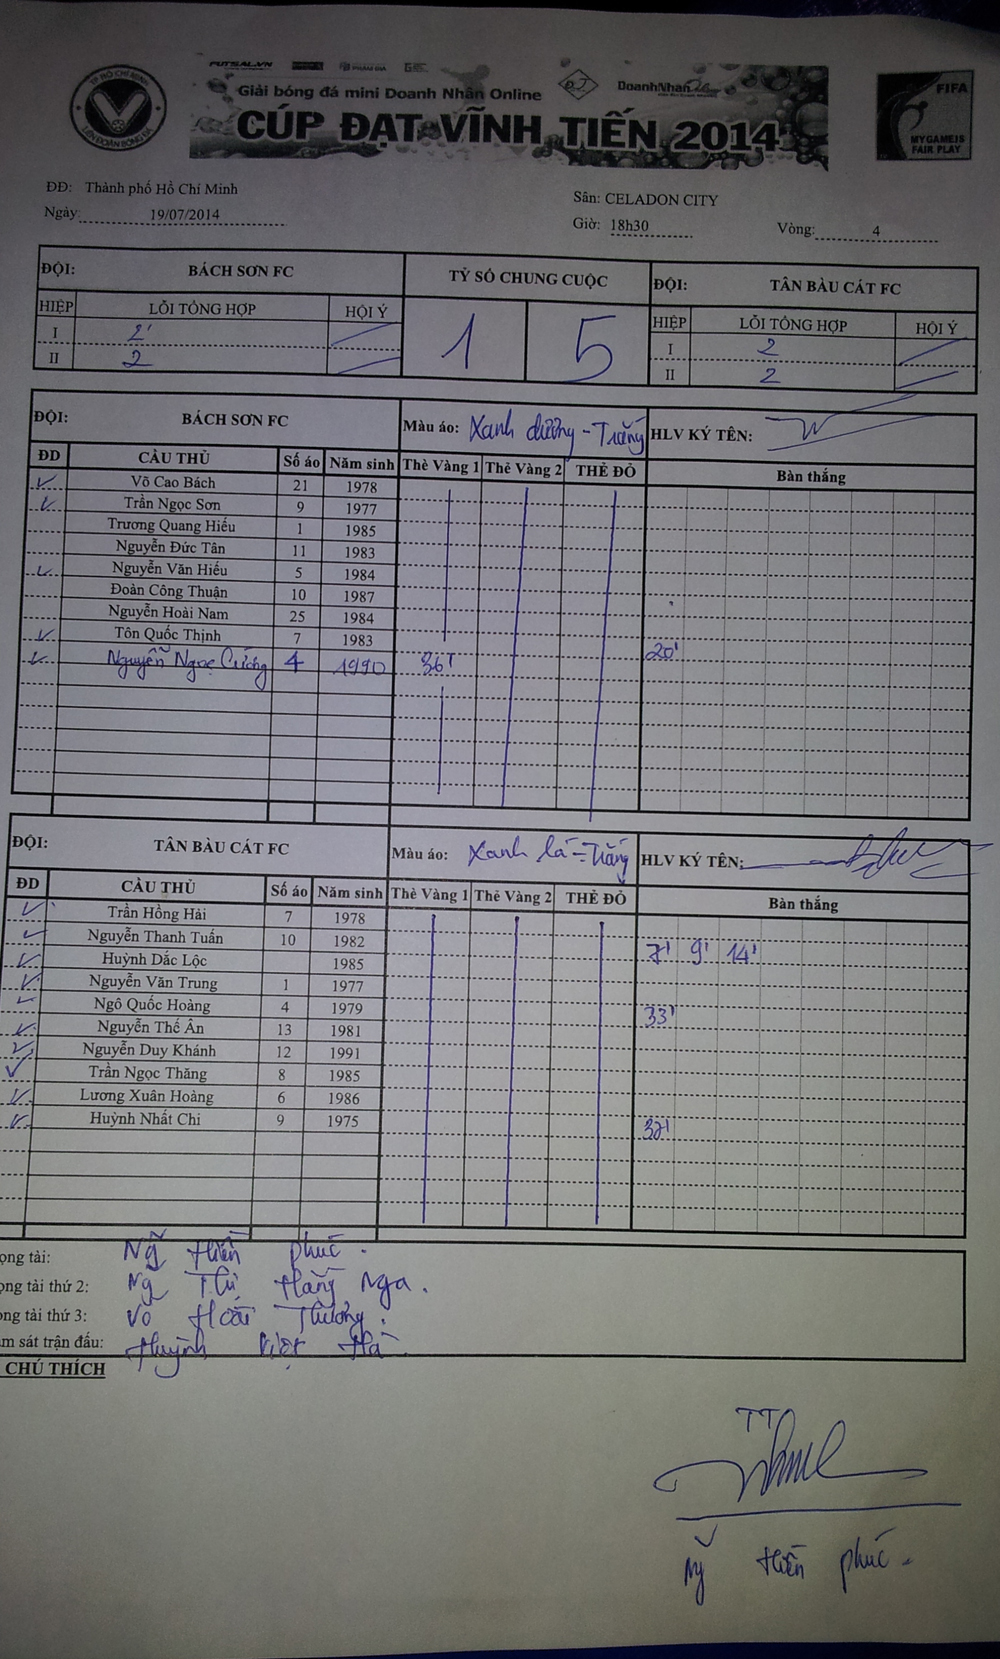 TP HỒ CHÍ MINH
LIÊN ĐOÀN BÓNG ĐÁ
FUTSAL.VN
Giải bóng đá mini Doanh Nhân Online
DoanhNhan
CÚP ĐẠT VĨNH TIẾN 2014
FIFA
MY GAME IS
FAIR PLAY
ĐĐ: Thành phố Hồ Chí Minh
Sân: CELADON CITY
Ngày: 19/07/2014
Giờ: 18h30 Vòng: 4
ĐỘI: BÁCH SƠN FC TỶ SỐ CHUNG CUỘC ĐỘI: TÂN BÀU CÁT FC
HIỆP LỖI TỔNG HỢP HỘI Ý 1 5 HIỆP LỖI TỔNG HỢP HỘI Ý
I 2 I 2
II 2 II 2
ĐỘI: BÁCH SƠN FC Màu áo: Xanh dương - Trắng HLV KÝ TÊN:
ĐD CẦU THỦ Số áo Năm sinh Thẻ Vàng 1 Thẻ Vàng 2 THẺ ĐỎ Bàn thắng
Võ Cao Bách 21 1978
Trần Ngọc Sơn 9 1977
Trương Quang Hiếu 1 1985
Nguyễn Đức Tân 11 1983
Nguyễn Văn Hiếu 5 1984
Đoàn Công Thuận 10 1987
Nguyễn Hoài Nam 25 1984
Tôn Quốc Thịnh 7 1983
Nguyễn Ngọc Cương 4 1990 36' 20'
ĐỘI: TÂN BÀU CÁT FC Màu áo: Xanh lá - Trắng HLV KÝ TÊN:
ĐD CẦU THỦ Số áo Năm sinh Thẻ Vàng 1 Thẻ Vàng 2 THẺ ĐỎ Bàn thắng
Trần Hồng Hải 7 1978
Nguyễn Thanh Tuấn 10 1982 7' 9' 14'
Huỳnh Dắc Lộc 1985
Nguyễn Văn Trung 1 1977
Ngô Quốc Hoàng 4 1979 33'
Nguyễn Thế Ân 13 1981
Nguyễn Duy Khánh 12 1991
Trần Ngọc Thăng 8 1985
Lương Xuân Hoàng 6 1986
Huỳnh Nhất Chi 9 1975 32'
ọng tài: Ng̃ Hiền phúc.
ọng tài thứ 2: Ng Thị Hằng Nga.
ọng tài thứ 3: Võ Hoài Thương.
m sát trận đấu: Huỳnh Việt Hà.
CHÚ THÍCH
TT
Ng̃ Hiền phúc.